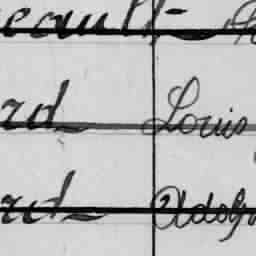 eault
rd Louis
rd Adolp